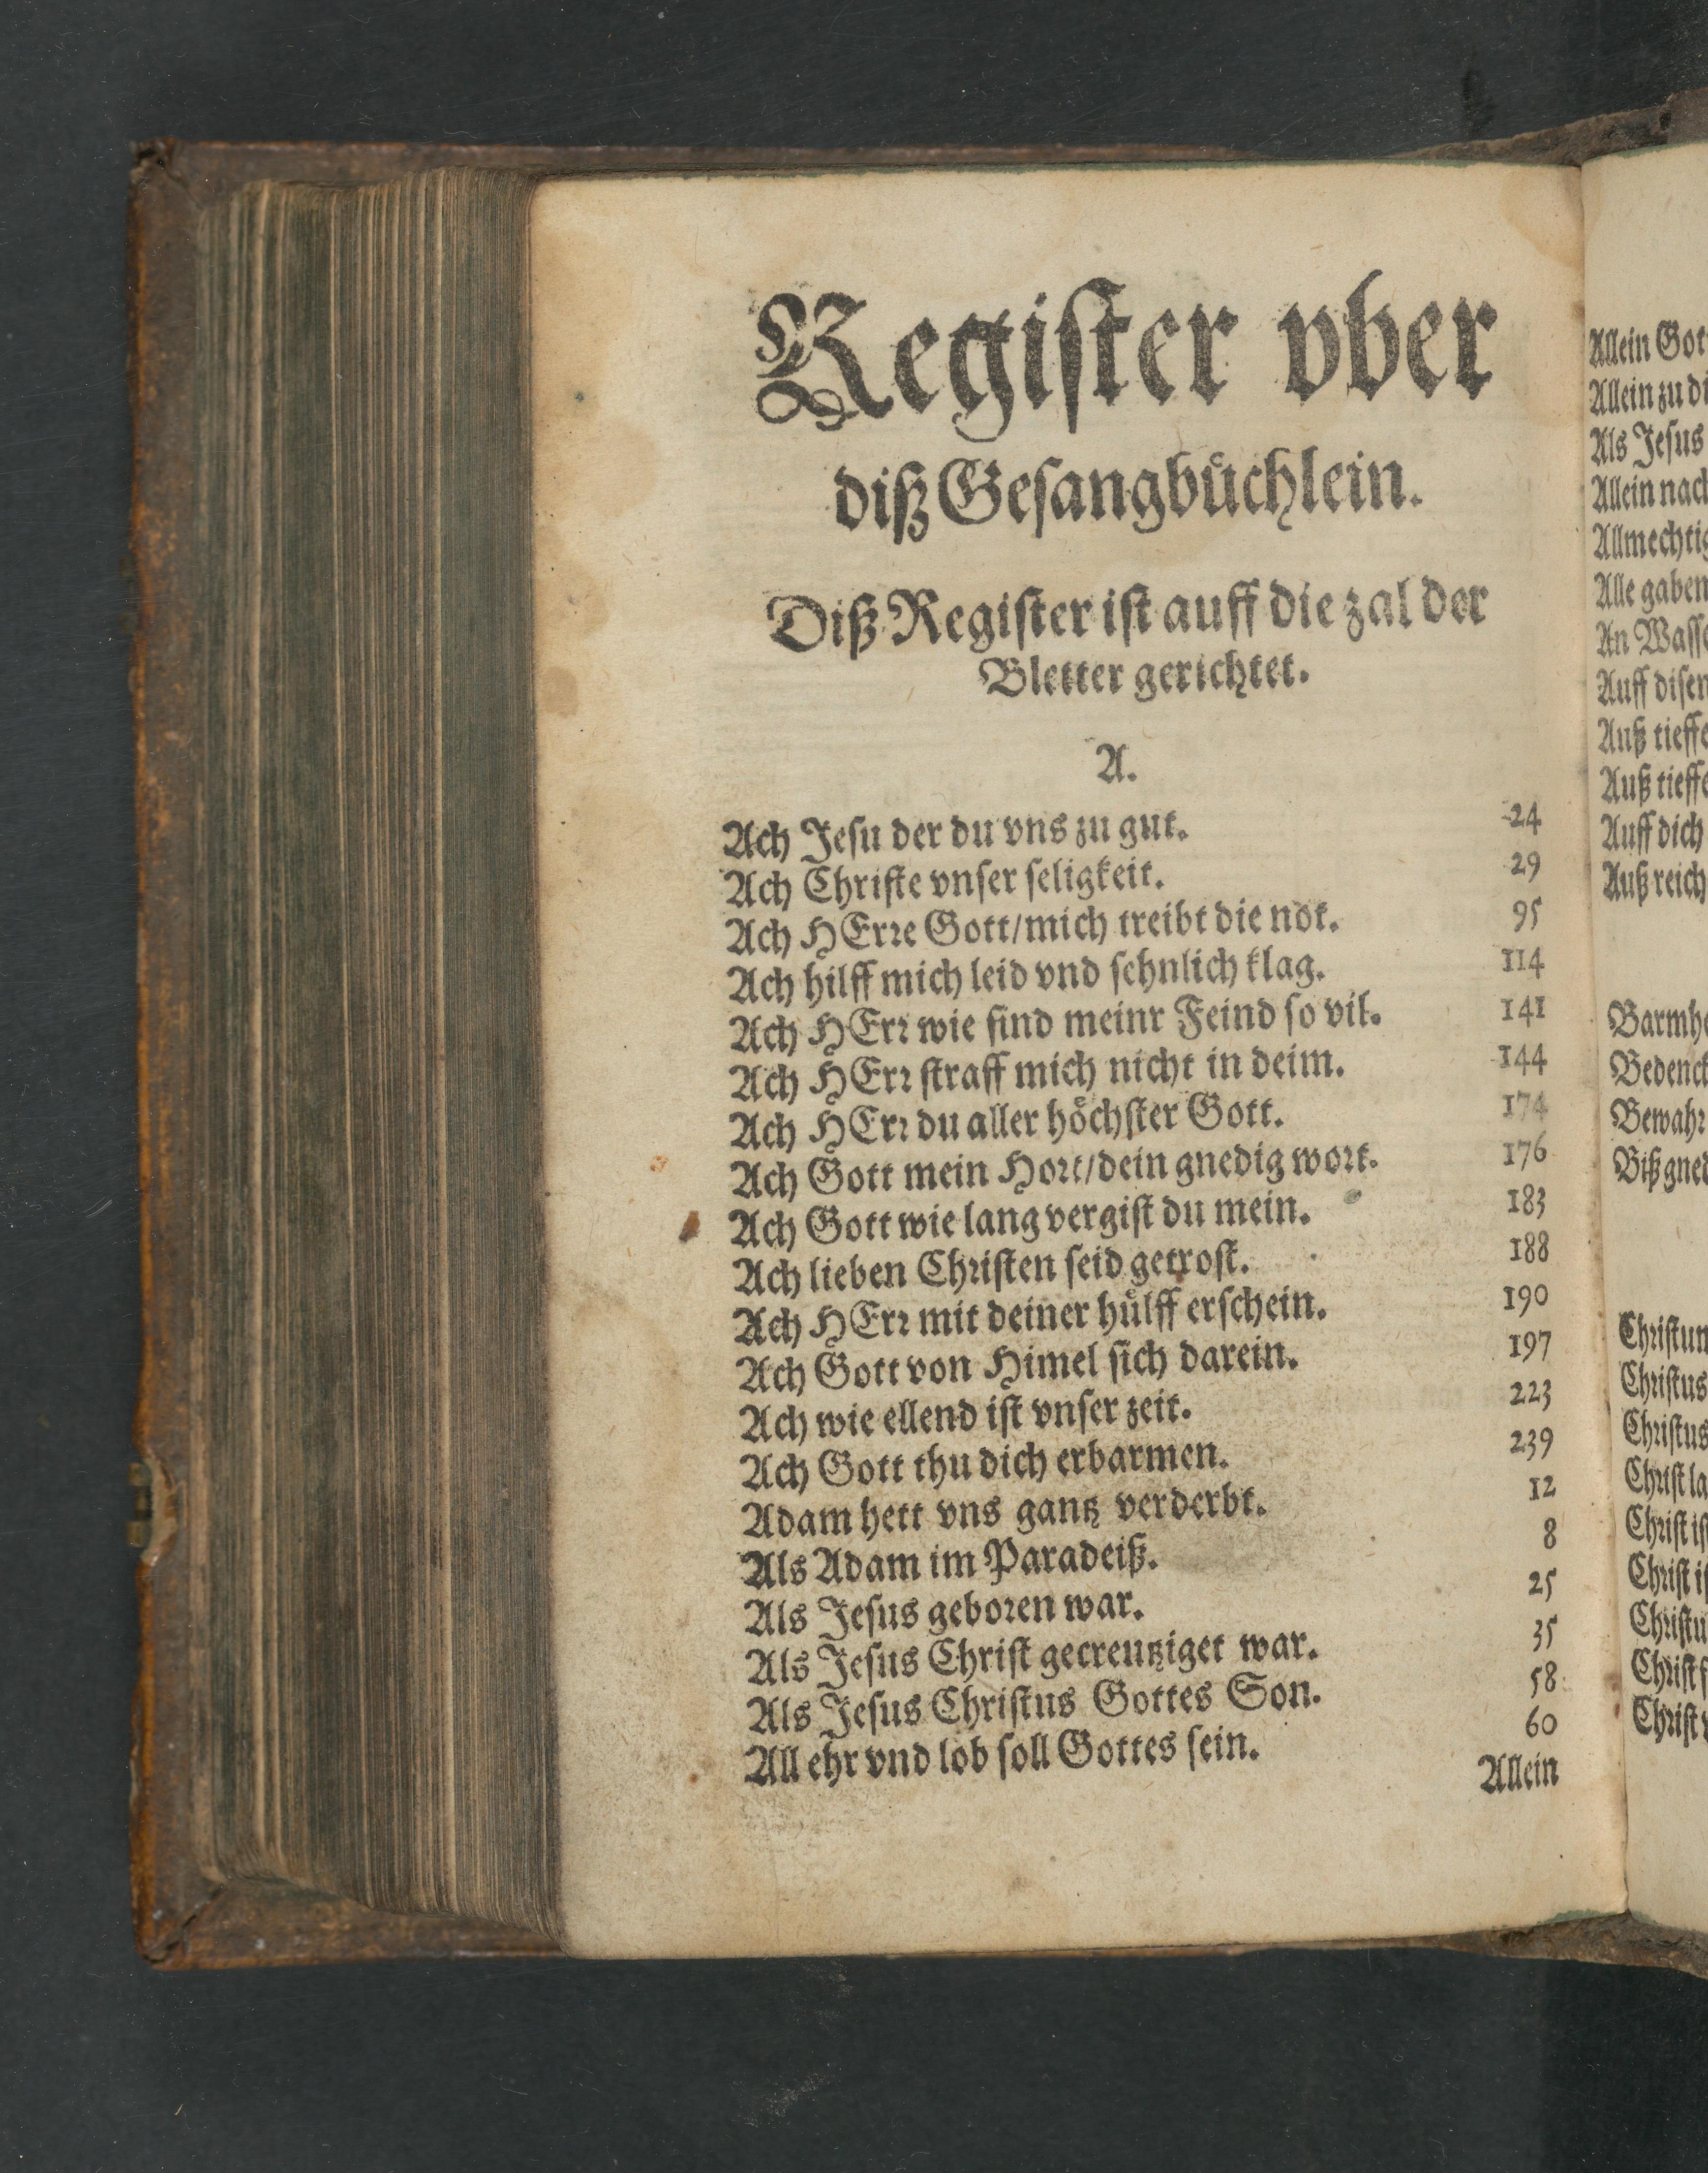 Register vber
diß Gesangbuͤchlein.
Diß Register ist auff die zal der
Bletter gerichtet.
A.
Ach Jesu der du vns zu gut. 24
Ach Christe vnser seligkeit. 29
Ach HErre Gott/mich treibt die not. 95
Ach hilff mich leid vnd sehnlich klag. 114
Ach HErr wie sind meinr Feind so vil. 141
Ach HErr straff mich nicht in deim. 144
Ach HErr du aller hoͤchster Gott. 174
Ach Gott mein Hort/dein gnedig wort. 176
Ach Gott wie lang vergist du mein. 183
Ach lieben Christen seid getrost. 188
Ach HErr mit deiner huͤlff erschein. 190
Ach Gott von Himel sich darein. 197
Ach wie ellend ist vnser zeit. 223
Ach Gott thu dich erbarmen. 239
Adam hett vns gantz verderbt. 12
Als Adam im Paradeiß. 8
Als Jesus geboren war. 25
Als Jesus Christ gecreutziget war. 35
Als Jesus Christus Gottes Son. 58
All ehr vnd lob soll Gottes sein. 60
Allein
Allein
Allein zu
Als Jesus
Allein
Alle gaben
An
Auff
Auß
Auß
Auff dich
Auß reich
Christus
Christus
Christ
Christ
Christ
Christ
Christ